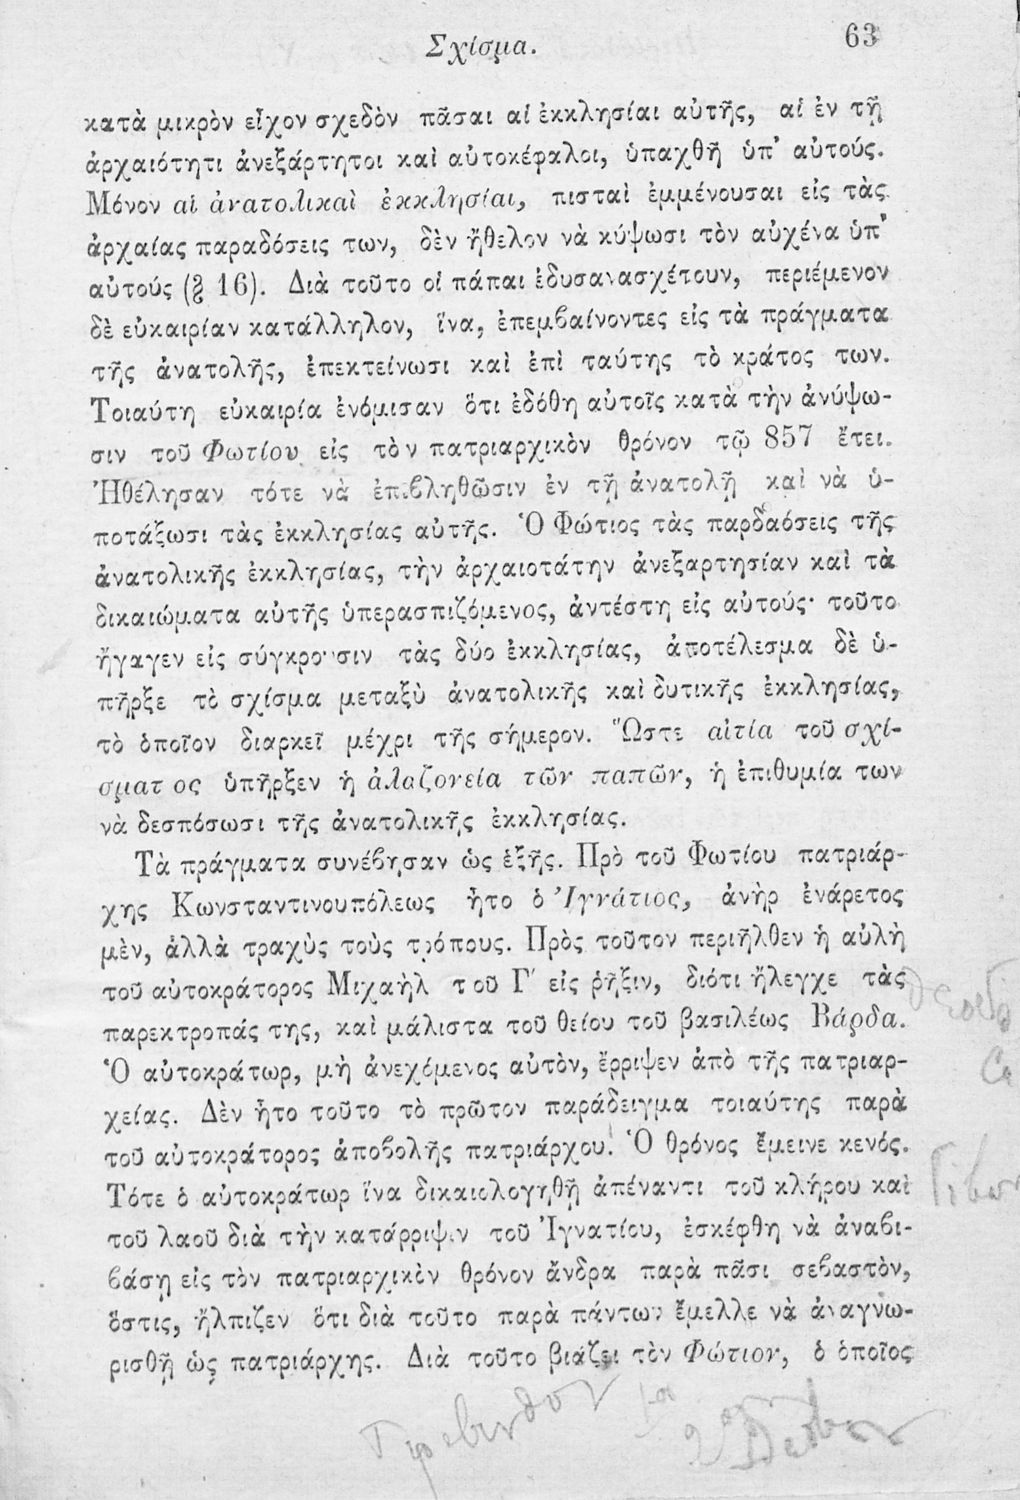 Σχίσμα.
63
κατὰ μικρὸν εἶχον σχεδὸν πᾶσαι αἱ ἐκκλησίαι αὐτῆς, αἱ ἐν τῇ
ἀρχαιότητι ἀνεξάρτητοι καὶ αὐτοκέφαλοι, ὑπαχθῆ ὑπ' αὐτούς.
Μόνον αἱ ἀνατολικαὶ ἐκκλησίαι, πισταὶ ἐμμένουσαι εἰς τὰς
ἀρχαίας παραδόσεις των, δὲν ἤθελον νὰ κύψωσι τὸν αὐχένα ὑπ'
αὐτούς (§ 16). Διὰ τοῦτο οἱ πάπαι ἐδυσανασχέτουν, περιέμενον
δὲ εὐκαιρίαν κατάλληλον, ἵνα, ἐπεμβαίνοντες εἰς τὰ πράγματα
τῆς ἀνατολῆς, ἐπεκτείνωσι καὶ ἐπὶ ταύτης τὸ κράτος των.
Τοιαύτη εὐκαιρία ἐνόμισαν ὅτι ἐδόθη αὐτοῖς κατὰ τὴν ἀνύψω-
σιν τοῦ Φωτίου εἰς τὸν πατριαρχικὸν θρόνον τῷ 857 ἔτει.
Ἠθέλησαν τότε νὰ ἐπιβληθῶσιν ἐν τῇ ἀνατολῇ καὶ νὰ ὑ-
ποτάξωσι τὰς ἐκκλησίας αὐτῆς. Ὁ Φώτιος τὰς παρδαόσεις τῆς
ἀνατολικῆς ἐκκλησίας, τὴν ἀρχαιοτάτην ἀνεξαρτησίαν καὶ τὰ
δικαιώματα αὐτῆς ὑπερασπιζόμενος, ἀντέστη εἰς αὐτούς· τοῦτο
ἤγαγεν εἰς σύγκρουσιν τὰς δύο ἐκκλησίας, ἀποτέλεσμα δὲ ὑ-
πῆρξε τὸ σχίσμα μεταξὺ ἀνατολικῆς καὶ δυτικῆς ἐκκλησίας,
τὸ ὁποῖον διαρκεῖ μέχρι τῆς σήμερον. Ὥστε αἰτία τοῦ σχί-
σματος ὑπῆρξεν ἡ ἀλαζονεία τῶν παπῶν, ἡ ἐπιθυμία των
νὰ δεσπόσωσι τῆς ἀνατολικῆς ἐκκλησίας.
Τὰ πράγματα συνέβησαν ὡς ἑξῆς. Πρὸ τοῦ Φωτίου πατριάρ-
χης Κωνσταντινουπόλεως ἦτο ὁ Ἰγνάτιος, ἀνὴρ ἐνάρετος
μὲν, ἀλλὰ τραχὺς τοὺς τρόπους. Πρὸς τοῦτον περιῆλθεν ἡ αὐλὴ
τοῦ αὐτοκράτορος Μιχαὴλ τοῦ Γ΄ εἰς ῥῆξιν, διότι ἤλεγχε τὰς
παρεκτροπάς της, καὶ μάλιστα τοῦ θείου τοῦ βασιλέως Βάρδα.
Ὁ αὐτοκράτωρ, μὴ ἀνεχόμενος αὐτὸν, ἔρριψεν ἀπὸ τῆς πατριαρ-
χείας. Δὲν ἦτο τοῦτο τὸ πρῶτον παράδειγμα τοιαύτης παρὰ
τοῦ αὐτοκράτορος ἀποβολῆς πατριάρχου. Ὁ θρόνος ἔμεινε κενός.
Τότε ὁ αὐτοκράτωρ ἵνα δικαιολογηθῇ ἀπέναντι τοῦ κλήρου καὶ
τοῦ λαοῦ διὰ τὴν κατάρριψιν τοῦ Ἰγνατίου, ἐσκέφθη νὰ ἀναβι-
βάσῃ εἰς τὸν πατριαρχικὸν θρόνον ἄνδρα παρὰ πᾶσι σεβαστὸν,
ὅστις, ἤλπιζεν ὅτι διὰ τοῦτο παρὰ πάντων ἔμελλε νὰ ἀναγνω-
ρισθῇ ὡς πατριάρχης. Διὰ τοῦτο βιάζει τὸν Φώτιον, ὁ ὁποῖος